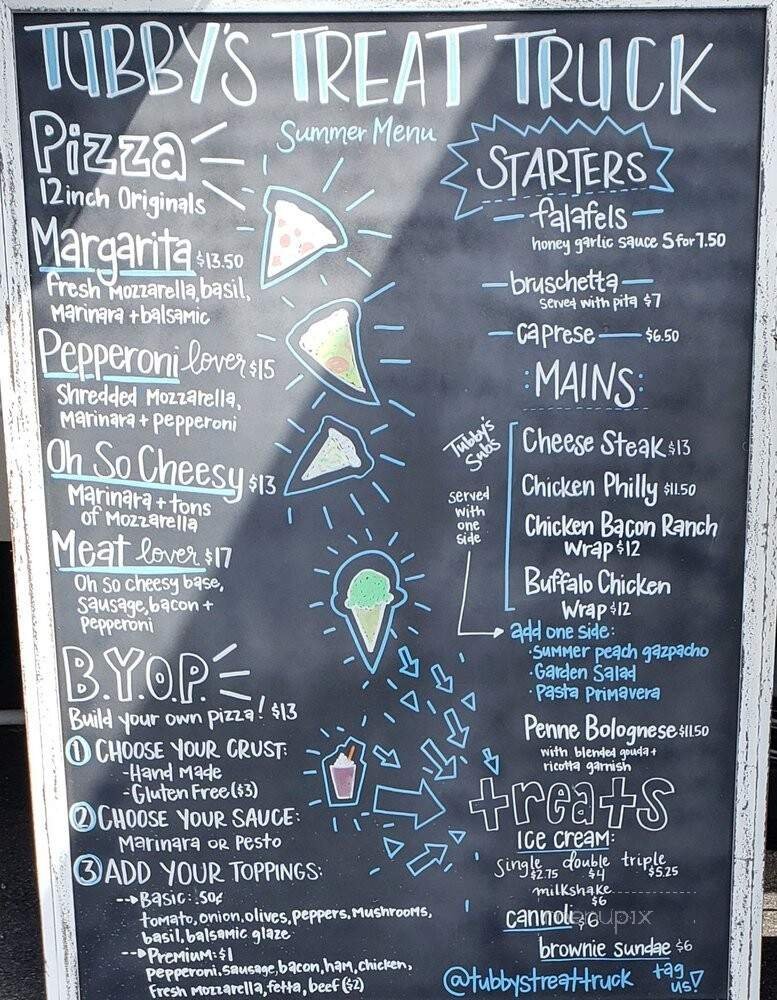 TUBBY'S TREAT TRUCK
Summer Menu
Pizza
12inch Originals
Margarita $13.50
Fresh Mozzarella, basil,
Marinara + balsamic
Pepperoni lover $15
Shredded Mozzarella,
Marinara + pepperoni
Oh So Cheesy $13
Marinara + tons
of Mozzarella
Meat lover $17
Oh so cheesy base,
Sausage, bacon +
Pepperoni
B.Y.O.P.
Build your own pizza! $13
1 CHOOSE YOUR CRUST:
-Hand Made
-Gluten Free ($3)
2 CHOOSE YOUR SAUCE:
Marinara or Pesto
3 ADD YOUR TOPPINGS:
--> Basic: .50¢
tomato, onion, olives, peppers, Mushrooms,
basil, balsamic glaze
--> Premium: $1
pepperoni. sausage, bacon, ham, chicken,
Fresh Mozzarella, fetta, beef ($2)
STARTERS
falafels
honey garlic sauce 5 for 7.50
bruschetta
served with pita $7
caprese $6.50
MAINS
Tubby's
Subs
served
with
one
side
Cheese Steak $13
Chicken Philly $11.50
Chicken Bacon Ranch
Wrap $12
Buffalo Chicken
Wrap $12
add one side:
·Summer peach gazpacho
·Garden Salad
·Pasta Primavera
Penne Bolognese $11.50
with blended gouda +
ricotta garnish
treats
ICE CREAM:
single double triple
$2.75 $4 $5.25
milkshake
$6
cannoli $6
menupix
brownie sundae $6
@tubbystreattruck
tag
us!